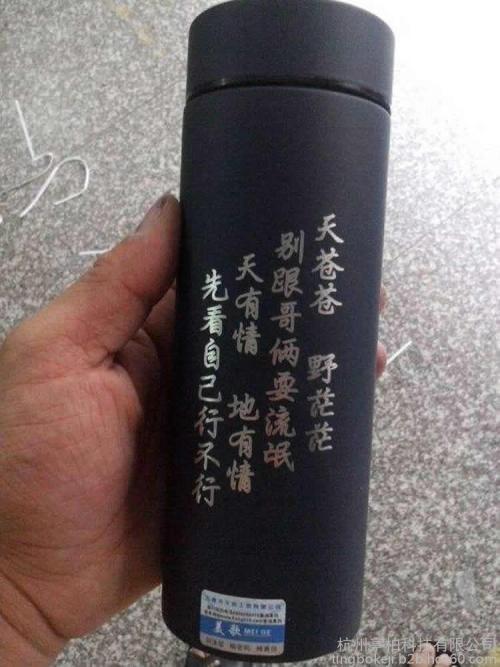 天苍苍 野茫茫
别跟哥俩耍流氓
天有情 地有情
先看自己行不行
美歌 MEI GE
杭州亭柏科技有限公司
tingbokeji.b2b.hc360.com